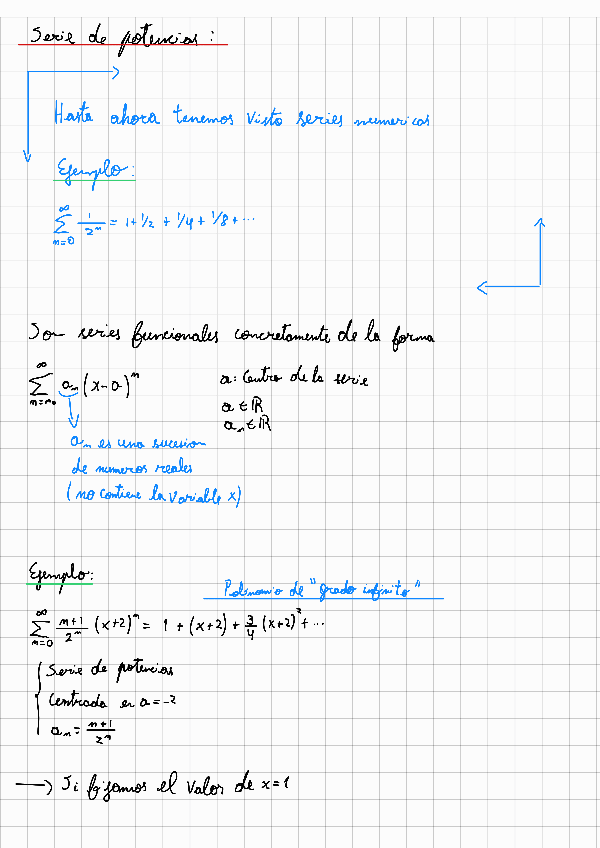 Serie de potencias:
Hasta ahora tenemos visto series numericas
Ejemplo:
∞
∑ 1/2ⁿ = 1 + 1/2 + 1/4 + 1/8 + ...
n=0
Son series funcionales concretamente de la forma
∞
∑ aₙ (x-a)ⁿ a: Centro de la serie
n=n₀ a ∈ ℝ
aₙ ∈ ℝ
aₙ es una sucesion
de numeros reales
(no contiene la variable x)
Ejemplo:
Polinomio de "grado infinito"
∞
∑ n+1/2ⁿ (x+2)ⁿ = 1 + (x+2) + 3/4 (x+2)² + ...
n=0
Serie de potencias
Centrada en a = -2
aₙ = n+1/2ⁿ
→ Si fijamos el valor de x=1